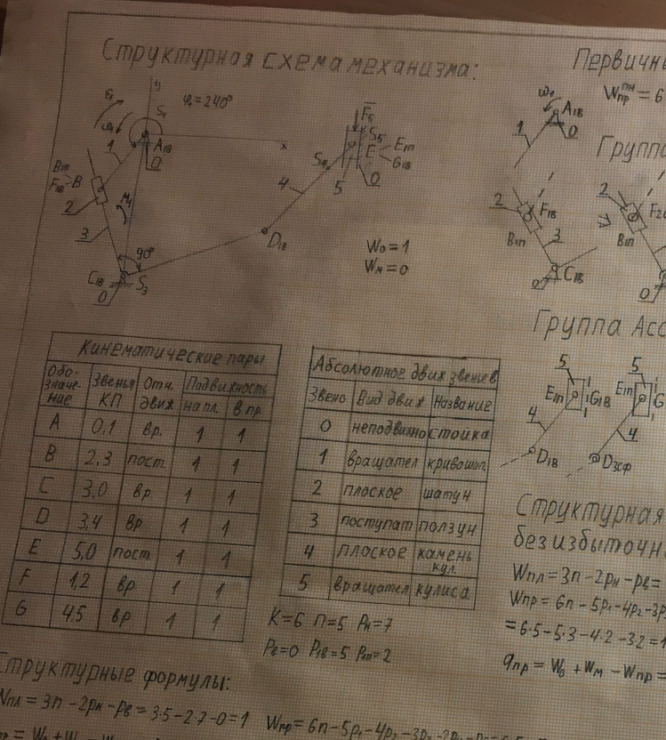 Структурная схема механизма:
Первичн
Wпр = 6
φ₁=240°
y
S₁
ε₁
ω₁
A₁в
x
1
0
F₅
S₅
E
E₁п
G₁в
S₄
4
5
0
B
2
3
M₃
90°
D₁в
C₁в
S₃
0
W₀=1
Wм=0
ω₁
A₁в
1
0
Группа
2
F₁в
B₁п
3
C₁в
0
2
B₁п
Группа Асс
5
E₁п
G₁в
4
D₁в
5
E₁п
G
4
D₃сф
Кинематические пары
Обо-значе-ние Звенья КП Отн. движ Подвижность на пл. в пр.
A 0,1 вр. 1 1
B 2,3 пост. 1 1
C 3,0 вр 1 1
D 3,4 вр 1 1
E 5,0 пост 1 1
F 1,2 вр 1 1
G 4,5 вр 1 1
Абсолютное движ звеньев
Звено Вид движ Название
0 неподвижно стойка
1 вращател кривошип
2 плоское шатун
3 поступат ползун
4 плоское камень кул.
5 вращател кулиса
K=6 n=5 Pн=7
Pв=0 P₁в=5 P₁п=2
Структурная
без избыточн
Wпл=3n-2pн-pв=
Wпр=6n-5p₁-4p₂-3p
=6·5-5·3-4·2-3·2=1
qпр=W₀+Wм-Wпр=
Структурные формулы:
Wпл=3n-2pн-pв=3·5-2·7-0=1
Wпр=6n-5p₁-4p₂-3p₃